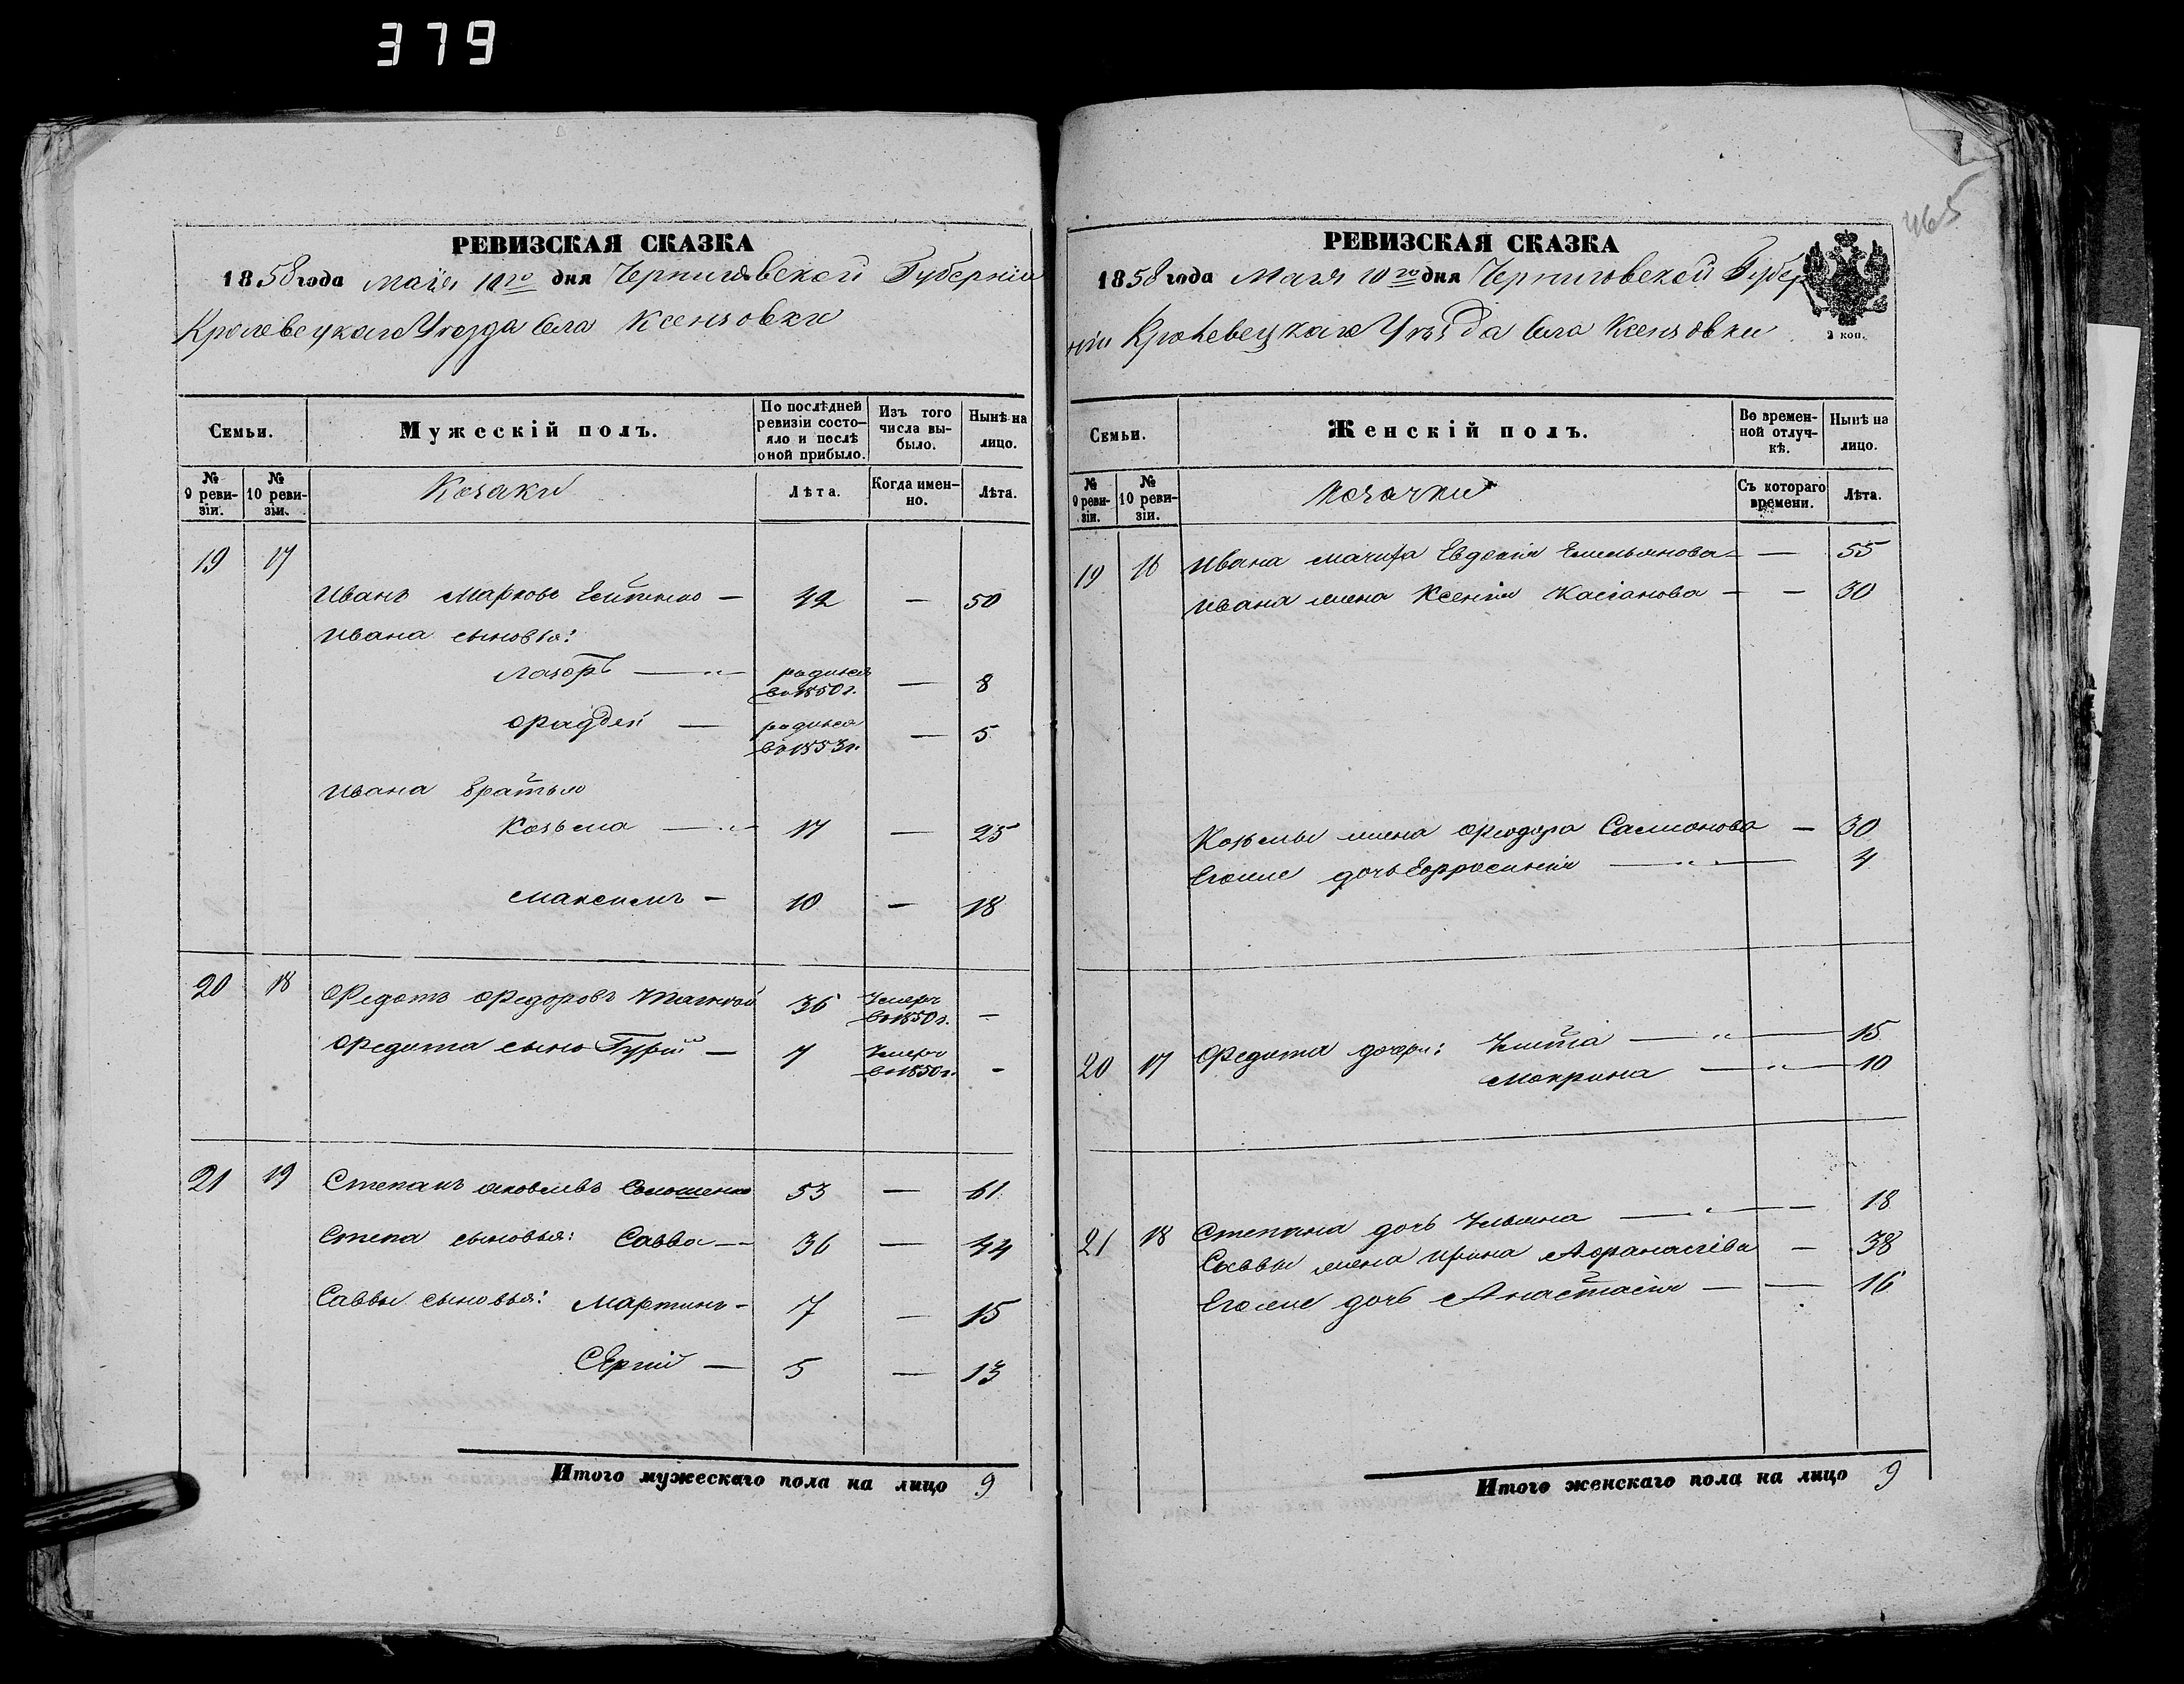 379
465
РЕВИЗСКАЯ СКАЗКА
1858 года Маія 10го дня Черниговской Губерніи
Кролевецкаго Уезда Села Ксензовки
Семьи.
Мужескій полъ.
По послѣдней ревизіи состо-
яло и послѣ оной прибыло.
Изъ того числа вы-
было.
Нынѣ на лицо.
№ 9 реви-
зіи.
№ 10 реви-
зіи.
Козаки
Лѣта.
Когда имен-
но.
Лѣта.
19 17
Иванъ Марковъ — 42 — 50
Ивана сыновья:
Лазорь — родился во 1850 г. — 8
Фаддей — родился во 1853 г. — 5
Ивана братья
Козьма — 17 — 25
Максимъ — 10 — 18
20 18 Федотъ Федоровъ 36 Умеръ во 1850 г. —
Федота сынъ Гурій — 7 Умеръ во 1850 г. —
21 19 Степанъ Яковлевъ Солошенко 53 — 61
Степа сыновья: Савва — 36 — 44
Саввы сыновья: Мартинъ — 7 — 15
Сергій — 5 — 13
Итого мужескаго пола на лицо 9
РЕВИЗСКАЯ СКАЗКА
1858 года Маія 10го дня Черниговской Губер
ніи Кролевецкаго Уезда Села Ксензовки
2 коп.
Семьи.
Женскій полъ.
Во времен-
ной отлуч-
кѣ.
Нынѣ на лицо.
№ 9 реви-
зіи.
№ 10 реви-
зіи.
Козачки
Съ котораго времени.
Лѣта.
19 16 Ивана мачиха Евдокія Емельянова — — 55
Ивана жена Ксенія Касіанова — — 30
Козьмы жена Феодора Самсонова — 30
Егоже дочь Ефросинія — 4
20 17 Федота дочери: Устія — 15
Мокрина — 10
21 18 Степана дочь Ульяна — — 18
Саввы жена Ирина Афанасіева — 38
Егоже дочь Анастасія — — 16
Итого женскаго пола на лицо 9